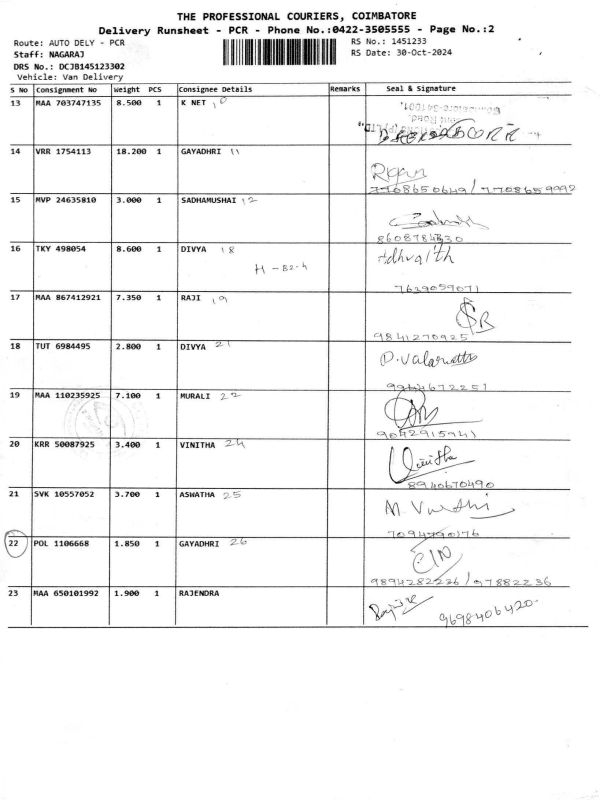 THE PROFESSIONAL COURIERS, COIMBATORE
Delivery Runsheet - PCR - Phone No.:0422-3505555 - Page No.:2
Route: AUTO DELY - PCR
RS No.: 1451233
Staff: NAGARAJ
RS Date: 30-Oct-2024
DRS No.: DCJB145123302
Vehicle: Van Delivery
S No Consignment No Weight PCS Consignee Details Remarks Seal & Signature
13 MAA 703747135 8.500 1 K NET 10
14 VRR 1754113 18.200 1 GAYADHRI 11
7708650649 / 7708659992
15 MVP 24635810 3.000 1 SADHAMUSHAI 12
8608784330
16 TKY 498054 8.600 1 DIVYA 18 Adhvaith
H - B2-4
7639059071
17 MAA 867412921 7.350 1 RAJI 19
9841270925
18 TUT 6984495 2.800 1 DIVYA 21
9944672251
19 MAA 110235925 7.100 1 MURALI 22
9042915941
20 KRR 50087925 3.400 1 VINITHA 24 Vinitha
8940670490
21 SVK 10557052 3.700 1 ASWATHA 25
7094790176
22 POL 1106668 1.850 1 GAYADHRI 26
9894282236 / 97882236
23 MAA 650101992 1.900 1 RAJENDRA
9698406420